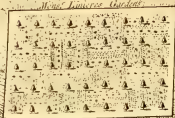 Mons.r Linieres Gardens.